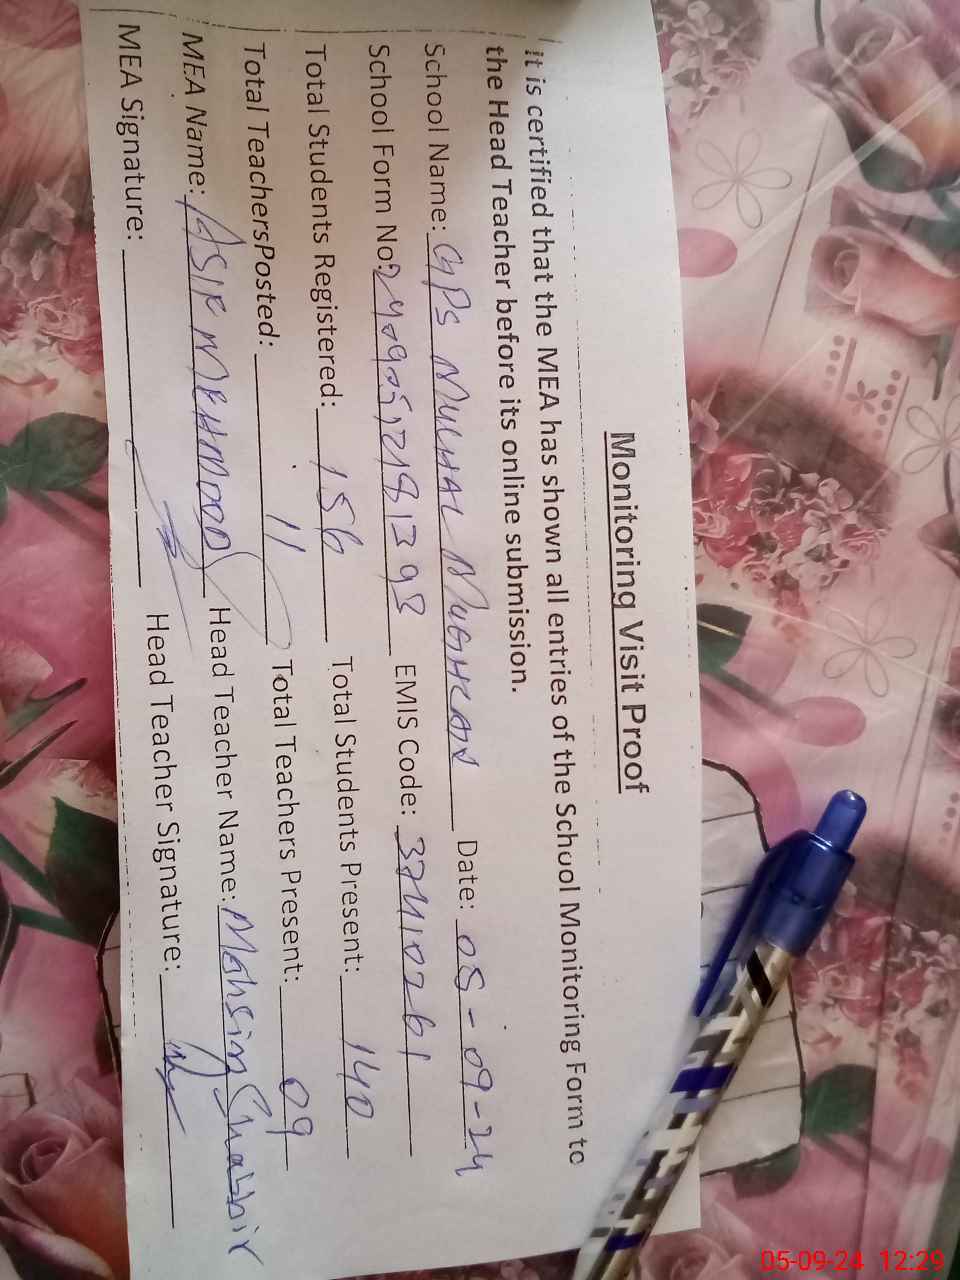 Monitoring Visit Proof
it is certified that the MEA has shown all entries of the School Monitoring Form to
the Head Teacher before its online submission.
School Name: GPS MUGHAL MUGHLAN Date: 05-09-24
School Form No: EMIS Code: 37410261
Total Students Registered: 156 Total Students Present: 140
Total TeachersPosted: 11 Total Teachers Present: 09
MEA Name: ASIF MEHMOOD Head Teacher Name: Mohsin Shabbir
MEA Signature: Head Teacher Signature:
05-09-24 12:29